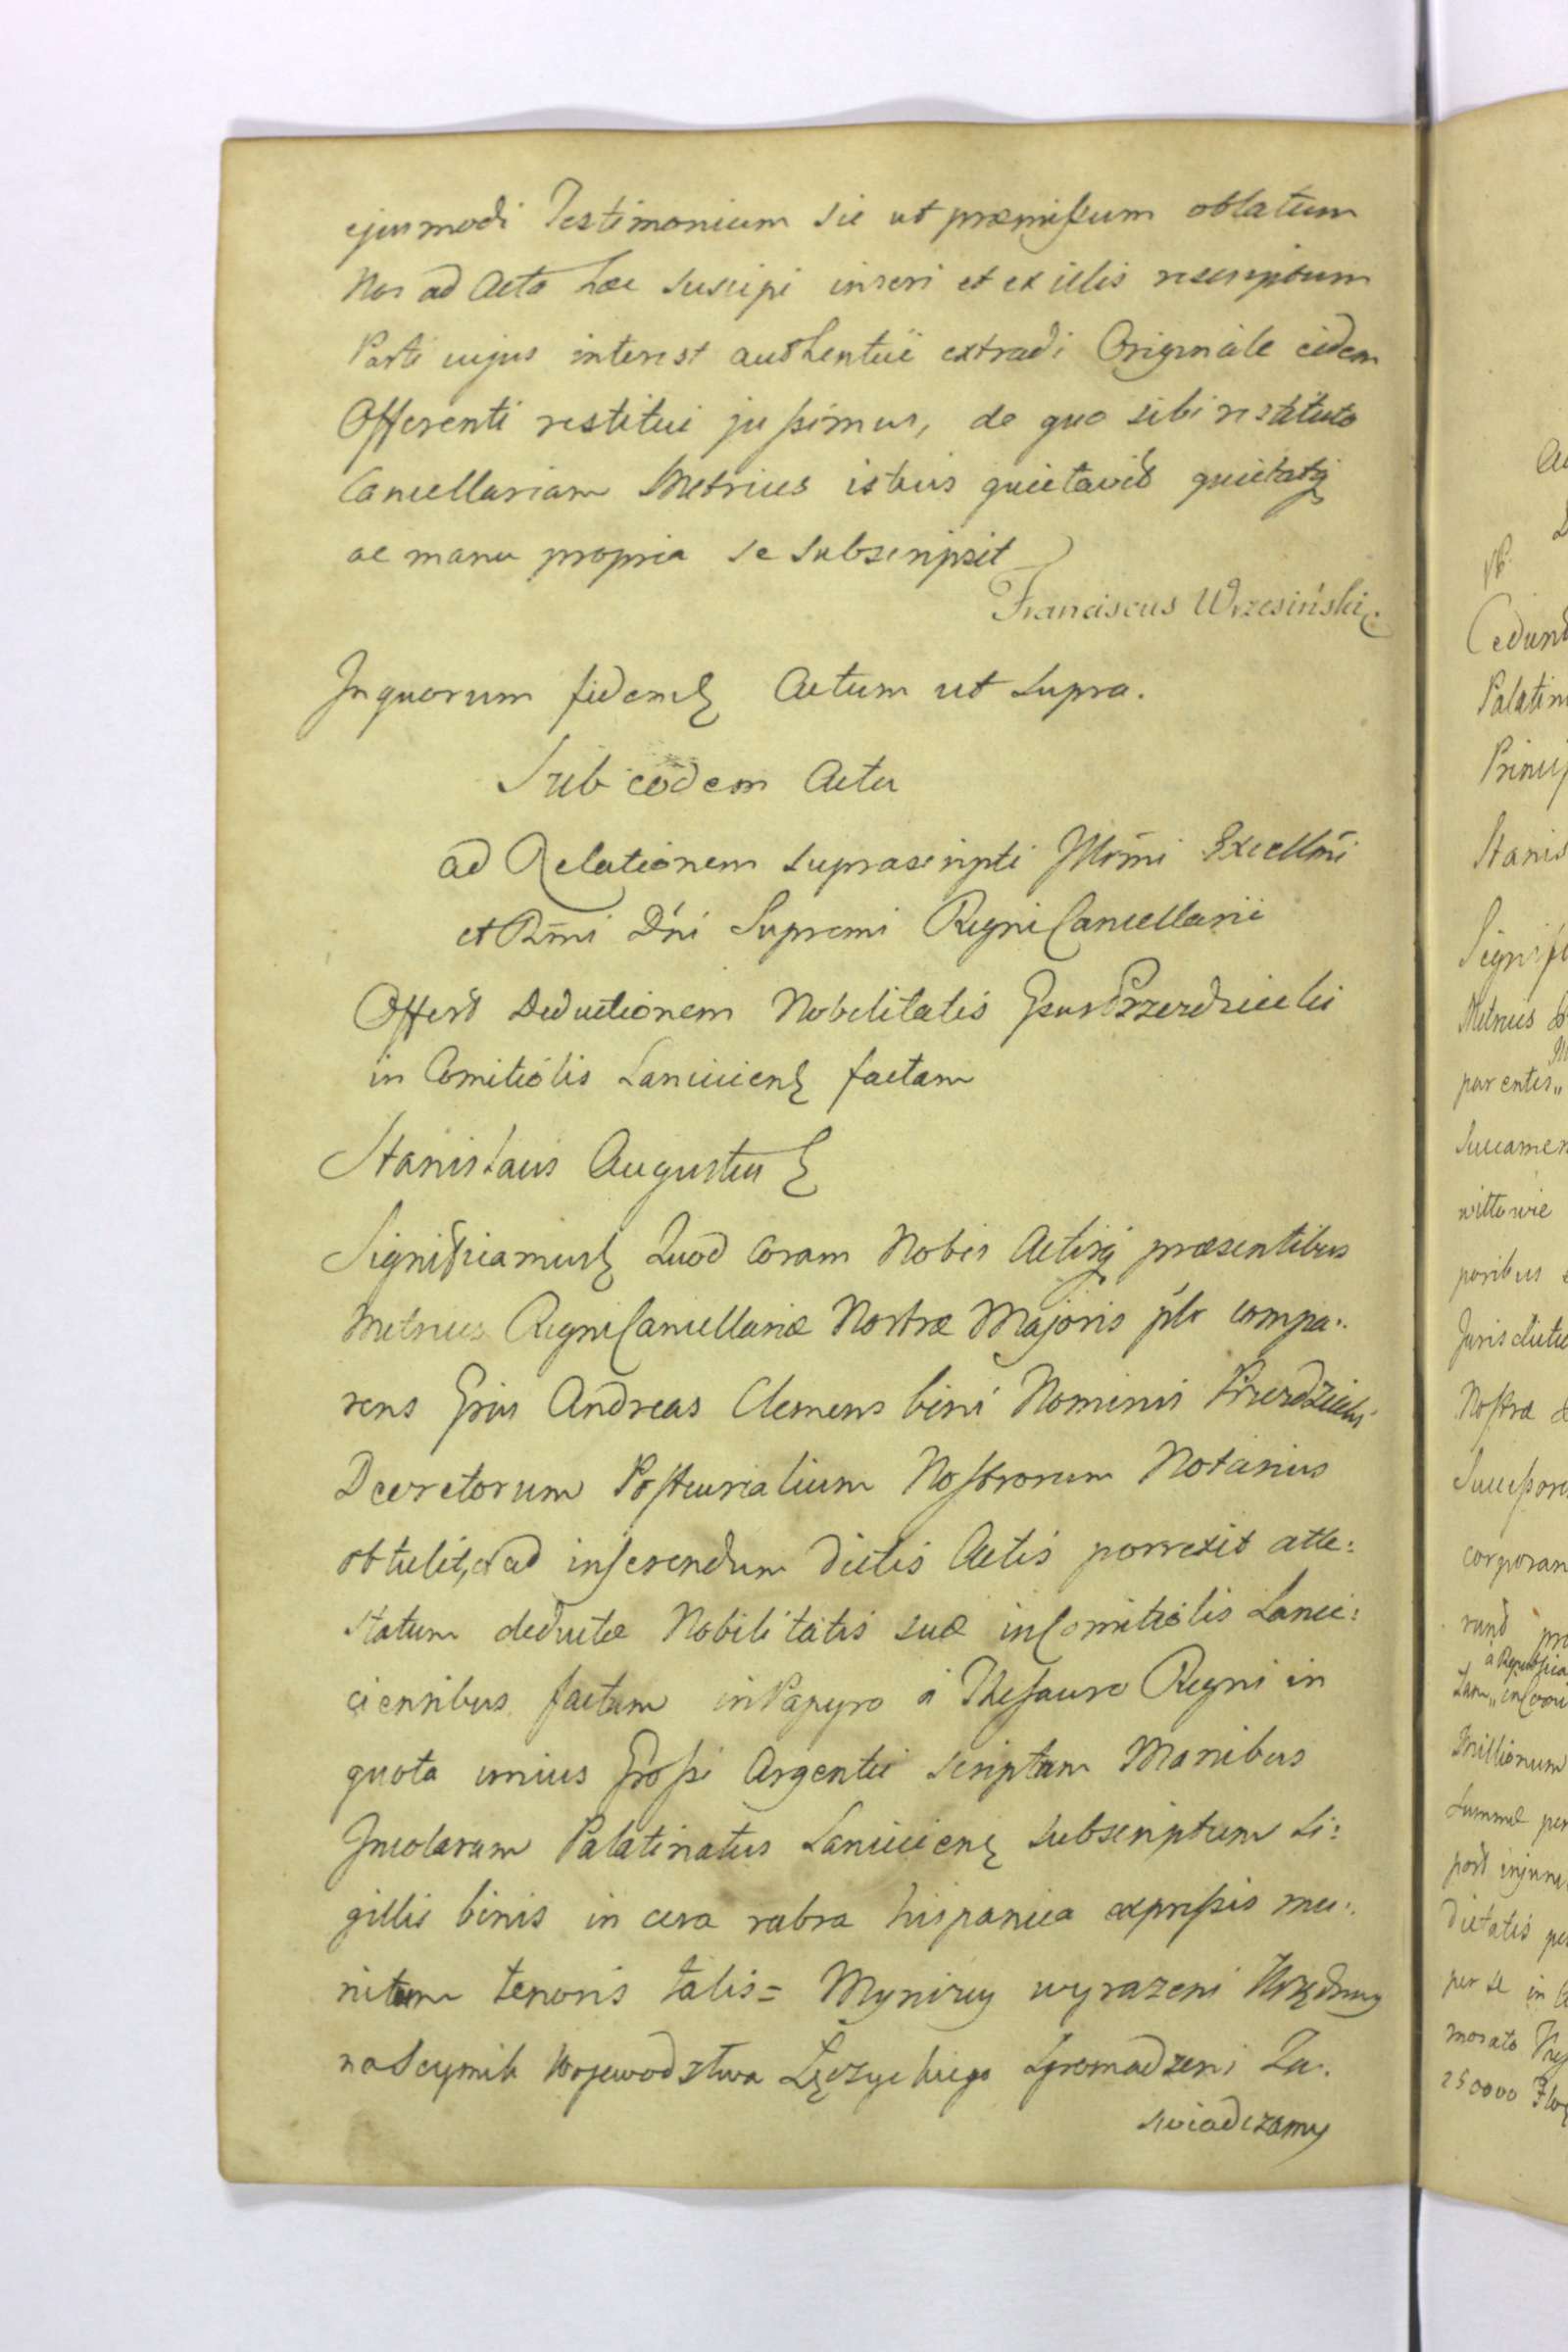 ejusmodi Testimonium sic ut præmissum oblatum
Nos ad Acta hæc suscipi inseri et ex illis rescriptum
Parti cujus interest authentice extradi Originale eidem
Offerenti restitui jussimus, de quo sibi restituto
Cancellariam Metrices istius quietavit quietatq
ac manu propria se subscripsit
Franciscus Wrzesiński
In quorum fidem Actum ut supra.
Sub eodem Actu
ad Relationem suprascripti Illmi Excellmi
et Rmi Dni Supremi Regni Cancellarii
Offert Deductionem Nobilitatis Gsus Przerdziecki
in Comitiolis Lanciciens factam
Stanislaus Augustus
Significamus Quod Coram Nobis Actisq præsentibus
Metrices Regni Cancellariæ Nostræ Majoris plr compa..
rens Gsus Andreas Clemens bini Nominis
Decretorum Postcurialium Nostrorum Notarius
obtulit, et ad inserendum dictis Actis porrexit atte:
statum deductæ Nobilitatis suæ in Comitiolis Lanci:
ciensibus factum in Papyro a Thesauro Regni in
quota unius Grossi Argentei scriptum Manibus
Incolarum Palatinatus Lanciciens subscriptum Si:
gillis binis in cera rubra hispanica expressis mu:.
nitum tenoris talis= My niżey wyrażeni Urzędnicy
na Seymik Wojewodztwa Łęczyckiego zgromadzeni Za:.
swiadczamy
Cedunt
Palatin
Princip
Stanis
Signifi
Metrices
parentes,,
paribus
Nostræ
Successore
corporan
Millionum
Summæ per
post injunc
per se in
250000